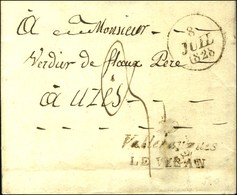 À Monsieur
8
JUIL
1828
Verdier de flaux Père
à UZÈS
LE VIGAN